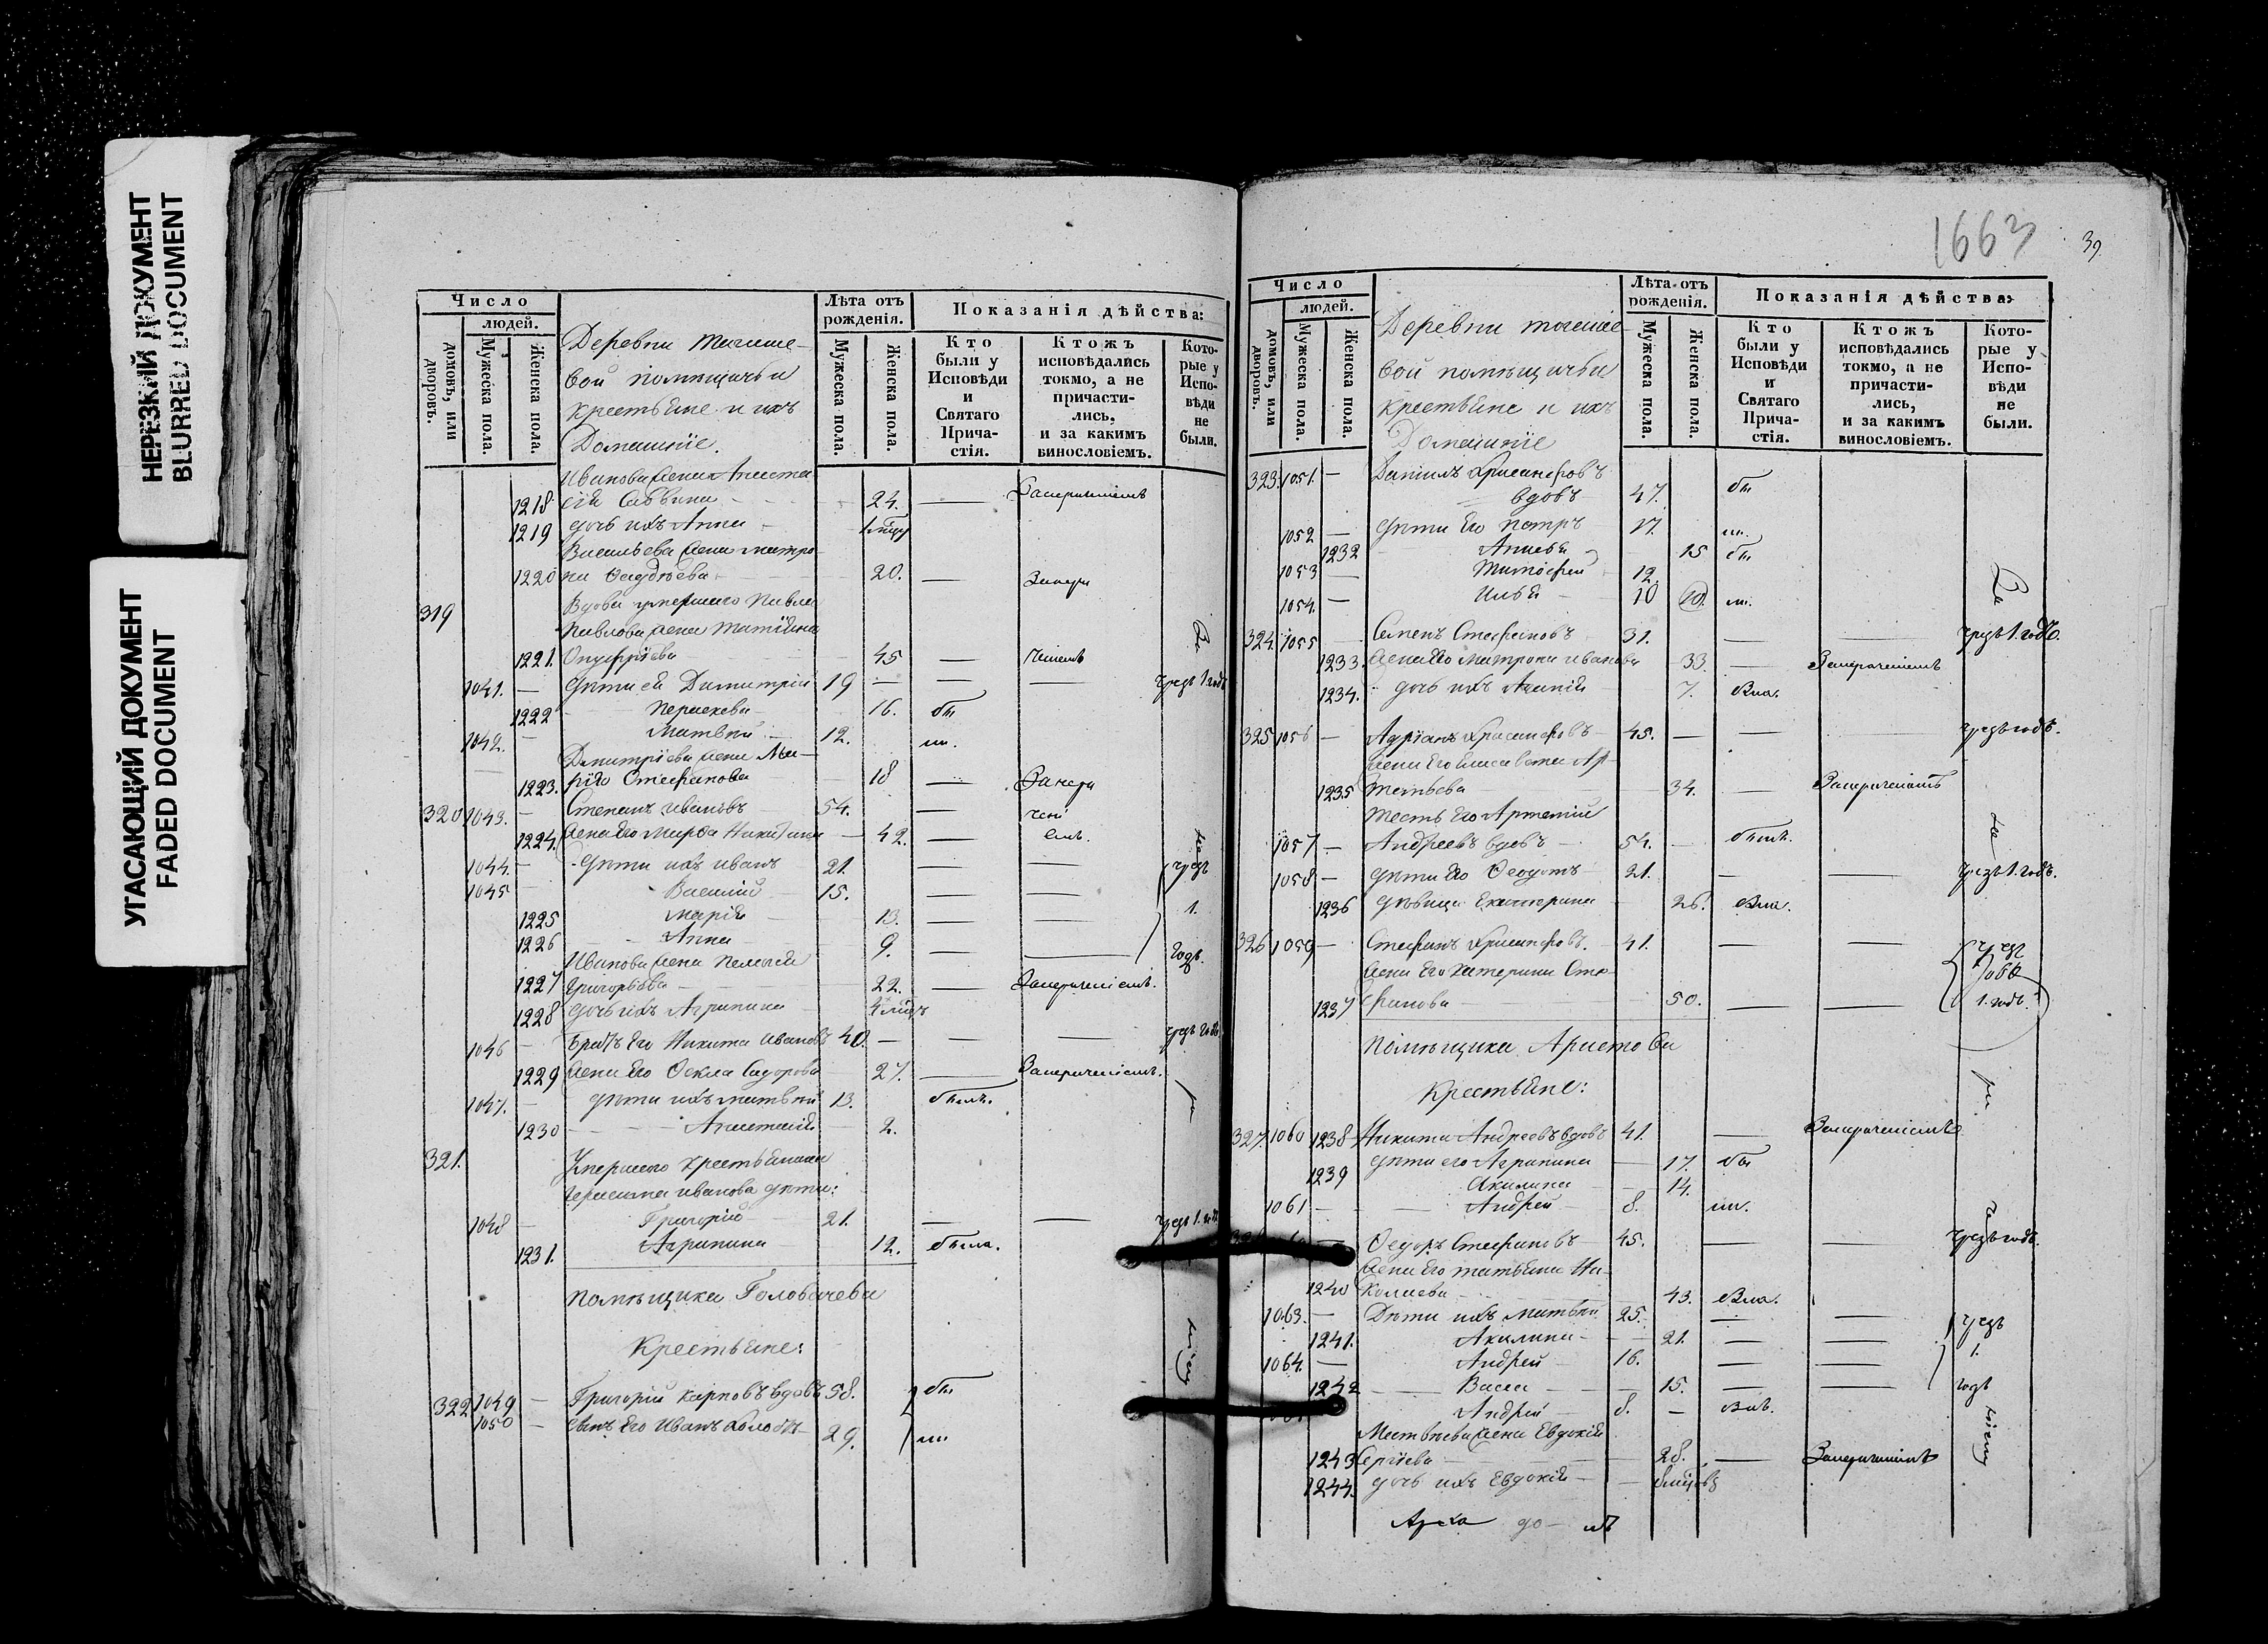 НЕРЕЗКИЙ ДОКУМЕНТ
BLURRED DOCUMENT
УГАСАЮЩИЙ ДОКУМЕНТ
FADED DOCUMENT
Число
людей.
домовъ, или дворовъ.
Мужеска пола.
Женска пола.
Деревни
вой помѣщичьи
крестьяне и ихъ
Домашніе.
Лѣта отъ рожденія.
Мужеска пола.
Женска пола.
Показанія дѣйства:
Кто были у Исповѣди и Святаго Причастія.
Ктожъ исповѣдались токмо, а не причастились, и за какимъ винословіемъ.
Которые у Исповѣди не были.
Иванова жена Анаста
1218 сія Саввина 24. —
1219 дочь ихъ Анна
Васильева жена матро
1220 на 20. —
319 Вдова умершаго Павла
Павлова жена Татіана
1221. Онуфріева 45 —
1041. — Дѣти ея Димитрій 19 — — чрезъ 1. годъ
1222 Параскева 16. бы
1042. — Матвѣй 12. ли.
Димитріева жена Ма-
1223. рія Стефанова 18 —
320 1043. — Степанъ Ивановъ 54. —
1224. жена Его Марѳа Никитина 42. —
1044. — Дѣти ихъ Иванъ 21. — — чрезъ
1045 — Василій 15. — —
1225 Марія 13. — — 1.
1226 Анна 9. — — годъ.
Иванова жена Пелагея
1227 Григорьева 22. —
1228 дочь ихъ Агрипина
1046 — Братъ Его Никита Ивановъ 40. — — чрезъ годъ
1229 жена Его Ѳекла Сидорова 27. —
1047. — дѣти ихъ Матвѣй 13. былъ.
1230 Анастасія 2.
321. Умершаго крестьянина
Герасима Иванова дѣти:
1048 — Григорій 21. — — чрезъ 1. годъ
1231. Агрипина 12. была.
помѣщика Головачева
Крестьяне:
322 1049 — Григорій Карповъ вдовъ 58. бы
1050 — сынъ Его Иванъ холостъ 29. ли
1663
39
Число
людей.
домовъ, или дворовъ.
Мужеска пола.
Женска пола.
Деревни
вой помѣщичьи
крестьяне и ихъ
Домашніе
Лѣта отъ рожденія.
Мужеска пола.
Женска пола.
Показанія дѣйства:
Кто были у Исповѣди и Святаго Причастія.
Ктожъ исповѣдались токмо, а не причастились, и за какимъ винословіемъ.
Которые у Исповѣди не были.
323. 1051. — Даніилъ Хрисанфовъ
вдовъ 47. бы
1052 — дѣти Его Петръ 17. ли.
1232 15 бы
1053 — Тимофей 12.
1054. — Илья 10 10. ли.
324. 1055 — Семенъ Стефановъ 31. — — чрезъ 1. годъ.
1233. жена Его Матрона Иванова 33. —
1234. дочь ихъ 7. была.
325 1056 — Адріанъ Хрисанфовъ 45. — — чрезъ годъ.
жена Его Елисавета Ар-
1235 темьева 34. —
тесть Его Артемій
1057 — Андреевъ вдовъ 54. былъ.
1058 — дѣти Его Ѳедотъ 21. — — чрезъ 1. годъ.
1236 дѣвица Екатерина 26. была.
326 1059 — Стефанъ Хрисанфовъ. 41. — — чрезъ
жена Его Катерина Сте- оба
1237 фанова 50. — — 1. годъ.
помѣщика Аристова
Крестьяне:
327. 1060 1238 Никита Андреевъ вдовъ 41. —
1239 дѣти его Агрипина 17. бы
Акилина 14.
1061 — Андрей 8. ли.
Ѳедоръ Стефановъ 45. — — чрезъ годъ.
жена Его Татьяна Ни-
1240 колаева 43. была.
1063. — Дѣти ихъ Матвѣй 25. — — чрезъ
1241. Акилина 21. — — 1.
1064. — Андрей 16. — —
1242 Васса 15. — — годъ
Андрей 8. — былъ.
Матвѣева жена Евдокія
1243 Сергіева 28. —
1244. дочь ихъ Евдокія